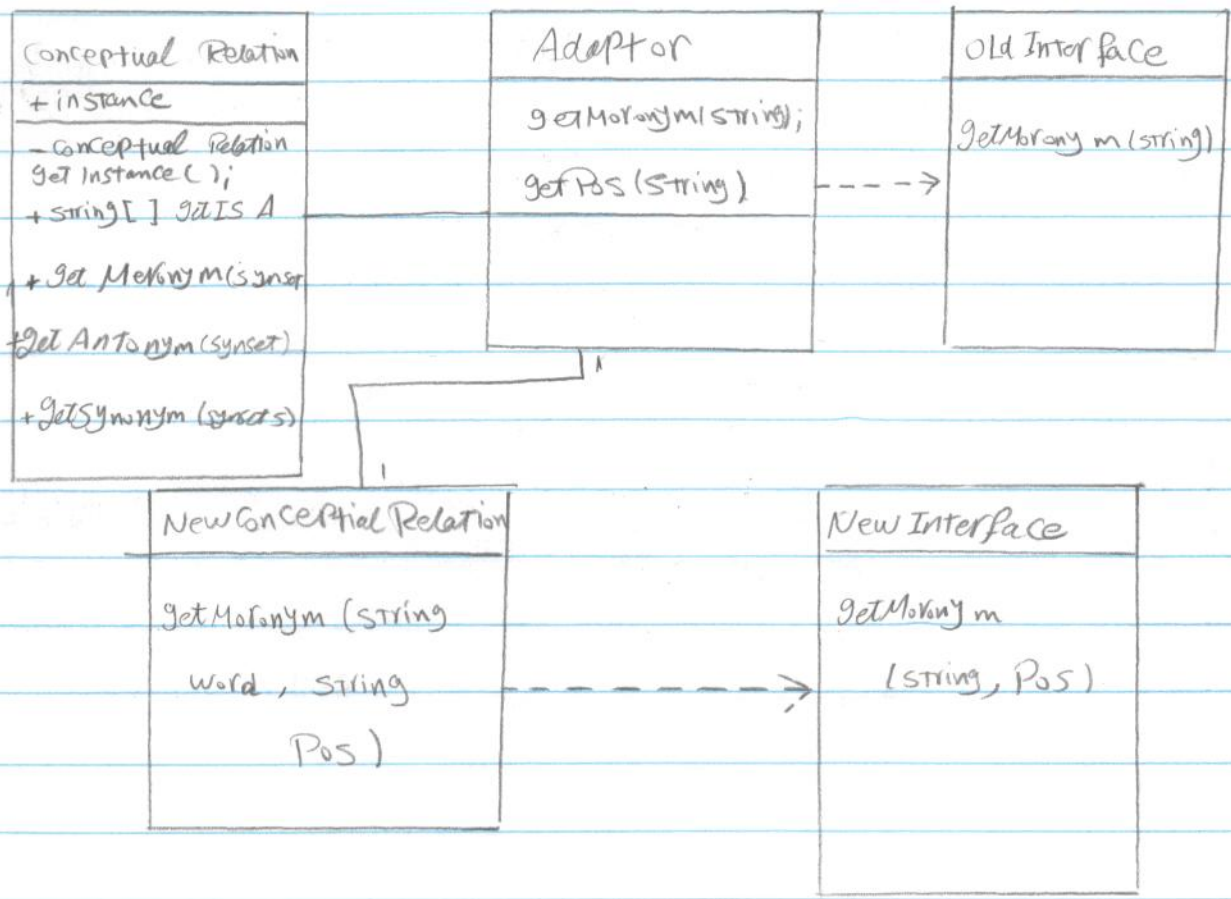 Conceptual Relation
+ instance
- conceptual Relation
get Instance ( );
+ string [ ] getIS A
+ get Meronym (synset
+get Antonym (synset)
+ getSynonym (synsets)
Adaptor
getMoronym(string);
getPos (string)
Old Interface
getMorony m (string)
1
1
New Conceptial Relation
getMoronym (string
word , string
Pos )
New Interface
getMorony m
(string, Pos )